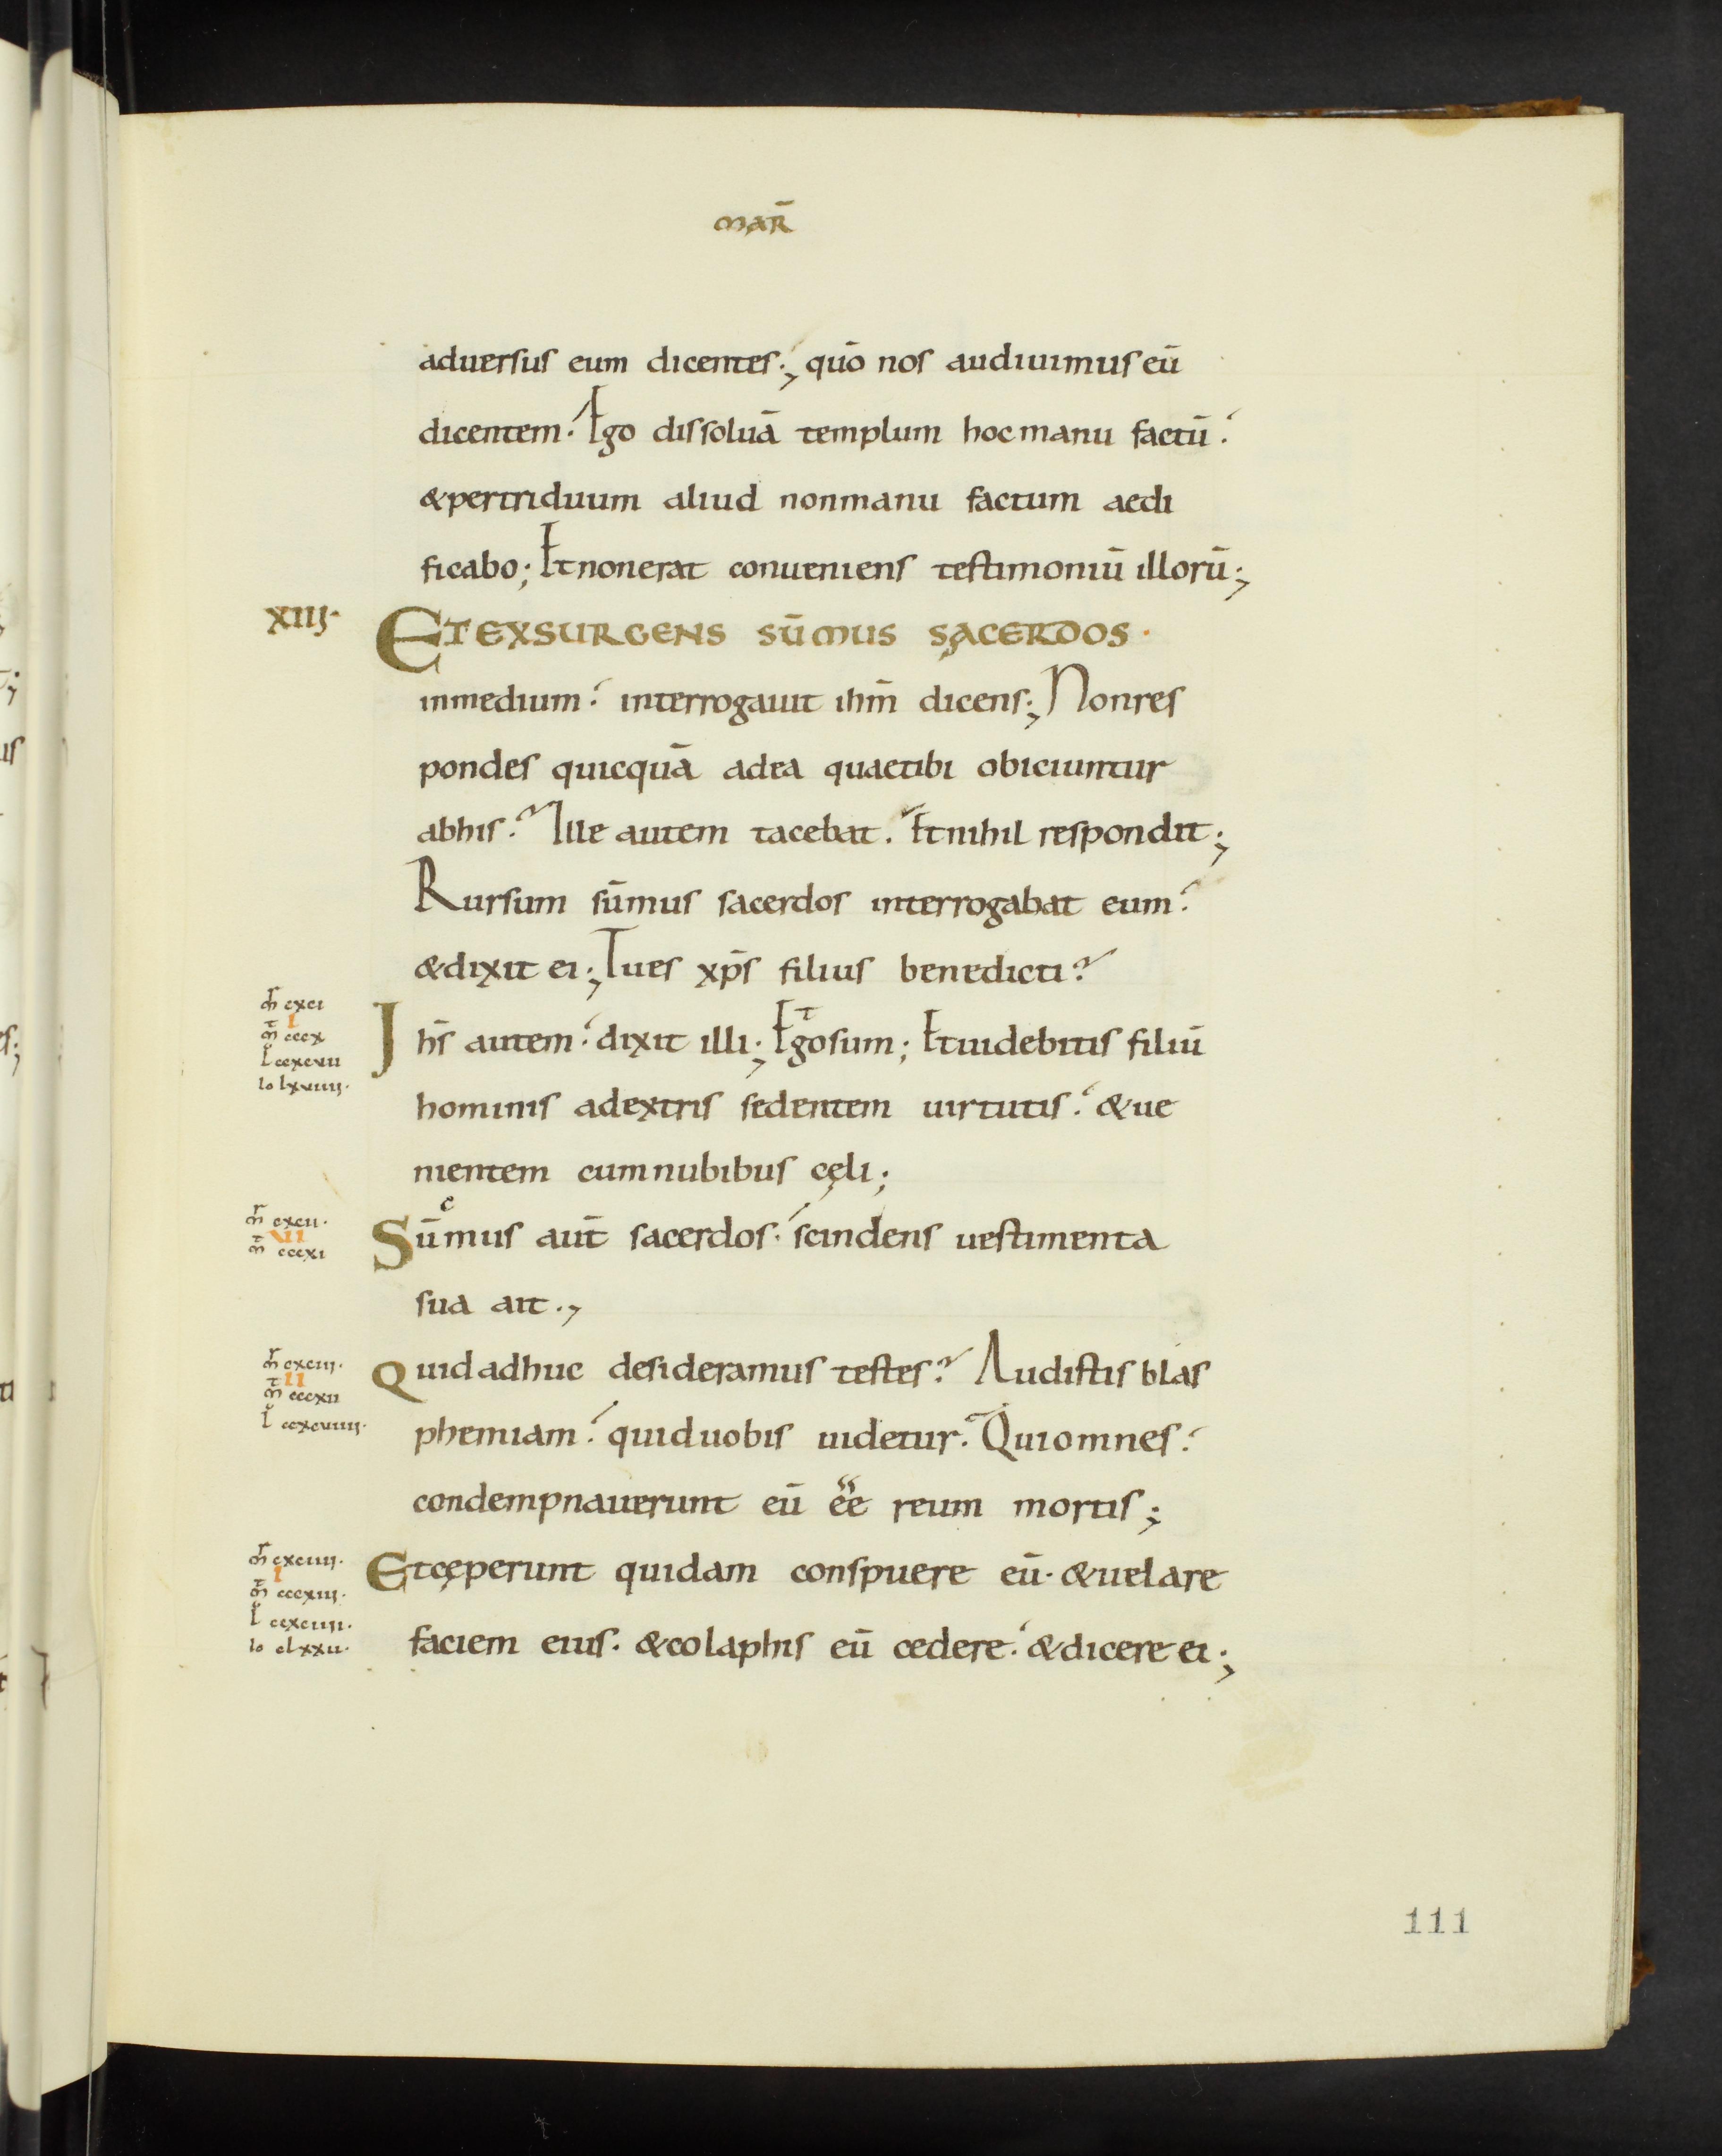 mar̄
aduersus eum dicentes., quō nos audiuimus eū
dicentem. Ego dissoluā templum hoc manu factū.
& per triduum aliud non manu factum aedi
ficabo; Et non erat conueniens testimoniū illorū.,
XIIII. ET EXSURGENS SŪMUS SACERDOS.
in medium. interrogauit ihm̄ dicens., Non res
pondes quicquā ad ea quae tibi obiciuntur
ab his? Ille autem tacebat. Et nihil respondit.,
Rursum sūmus sacerdos interrogabat eum.
& dixit ei., Tu es xp̄s filius benedicti?
m̄r cxci
I
m̄t cccx
l ccxcvii
io lxviiii.
Ihs̄ autem. dixit illi., Ego sum; Et uidebitis filiū
hominis a dextris sedentem uirtutis. & ue
nientem cum nubibus cęli;
m̄r cxcii.
VI
m̄t cccxi
Sūmus aut̄ sacerdos. scindens uestimenta
sua ait.,
m̄r cxciii.
II
m̄t cccxii
l ccxcviiii.
Quid adhuc desideramus testes? Audistis blas
phemiam. quid uobis uidetur. Qui omnes.
condempnauerunt eū ēē reum mortis.,
m̄r cxciiii.
I
m̄t cccxiii.
l ccxciiii.
io clxxii.
Et cęperunt quidam conspuere eū. & uelare
faciem eius. & colaphis eū cedere. & dicere ei.,
111